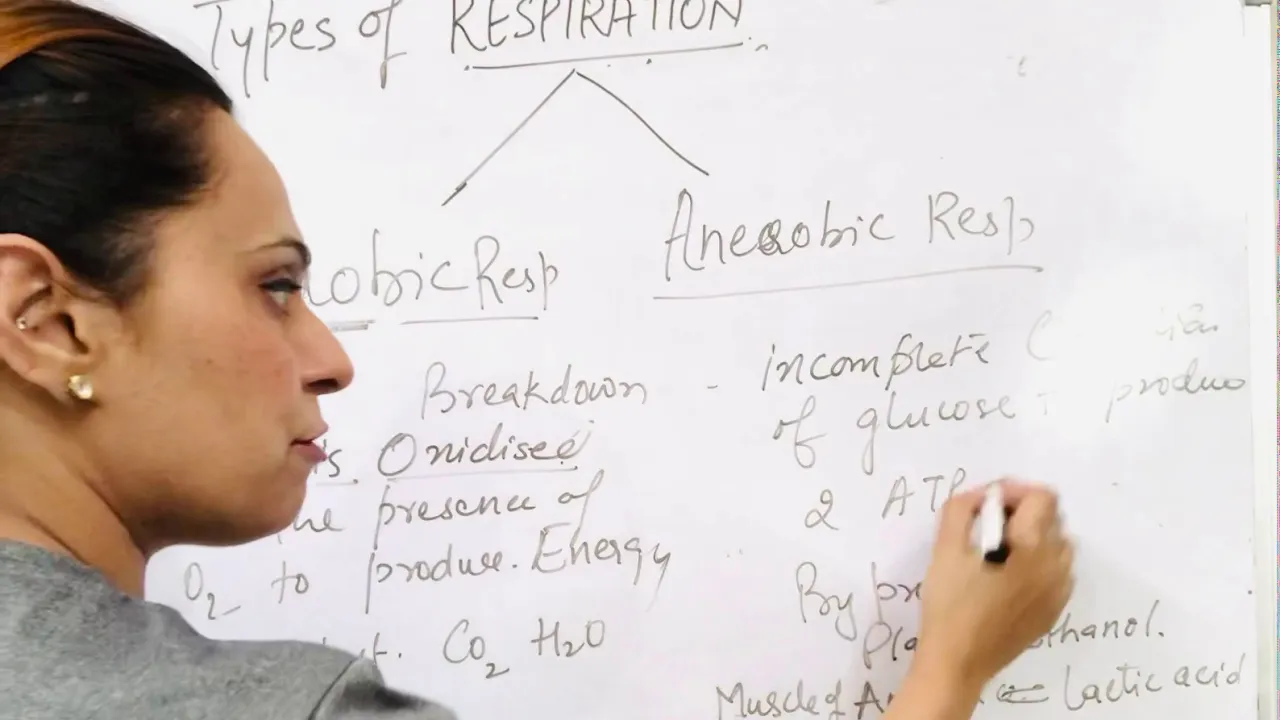 Types of RESPIRATION
obic Resp
Breakdown
is Oxidised
the presence of
O2 to produce. Energy
t. CO2 H2O
Aneaobic Resp
- incomplete
of glucose produce
2 ATP
By pr
Pla thanol.
Muscle of A = lactic acid